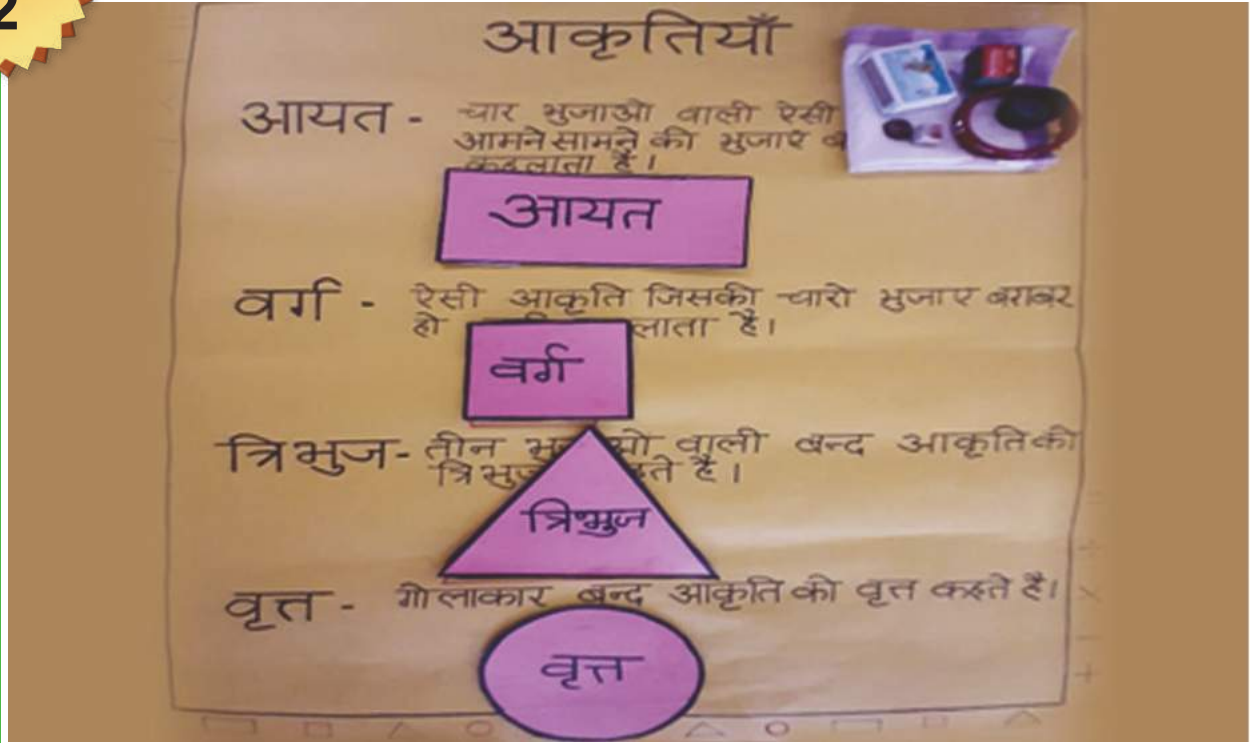 2
आकृतियाँ
आयत - चार भुजाओ वाली ऐसी
आमने सामने की भुजाए
कहलाता है।
आयत
वर्ग - ऐसी आकृति जिसकी चारो भुजाए बराबर
हो लाता है।
वर्ग
त्रिभुज - तीन वाली बन्द आकृति को
त्रिभुज ते है।
त्रिभुज
वृत्त - गोलाकार बन्द आकृति को वृत्त कहते है।
वृत्त